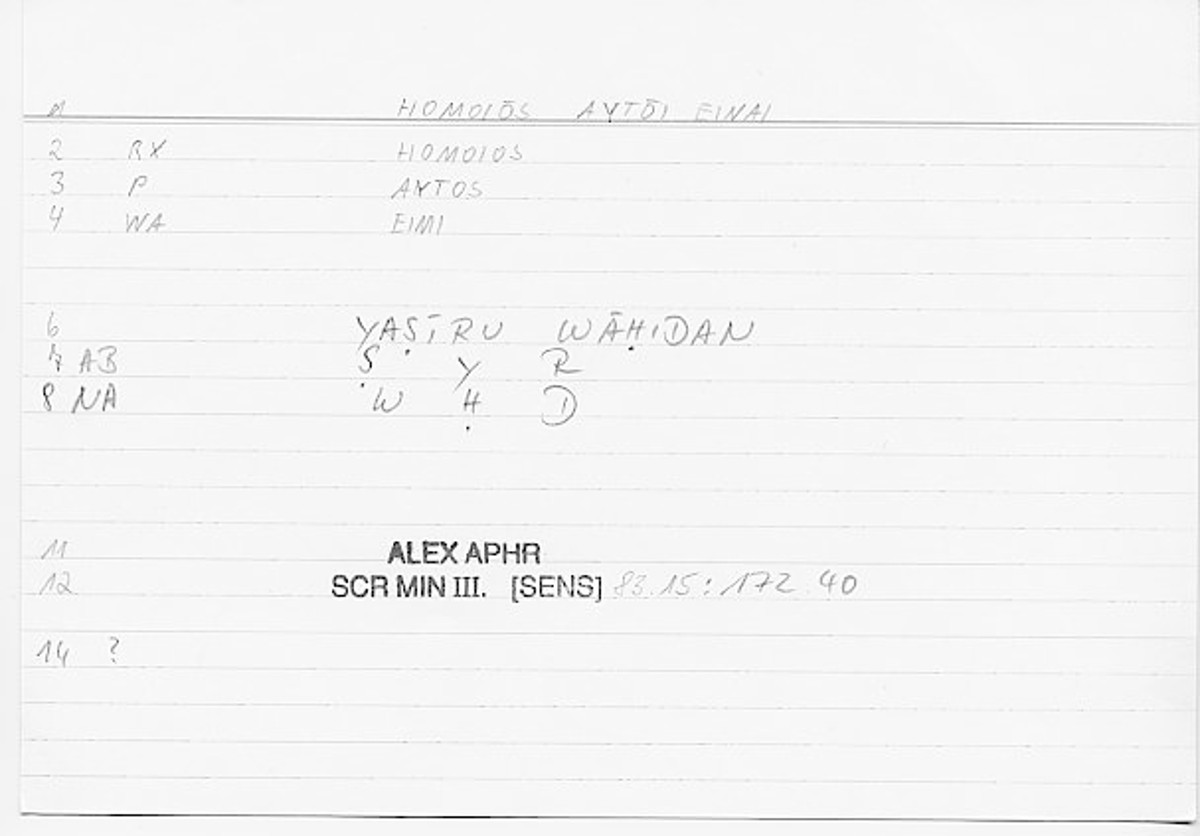 1 HOMOIŌS AYTŌI EINAI
2 RX HOMOIOS
3 P AYTOS
4 WA EIMI
6 YAṢĪRU WĀḤIDAN
7 AB Ṣ Y R
8 NA W Ḥ D
11 ALEX APHR
12 SCR MIN III. [SENS] 83.15:172.40
14 ?